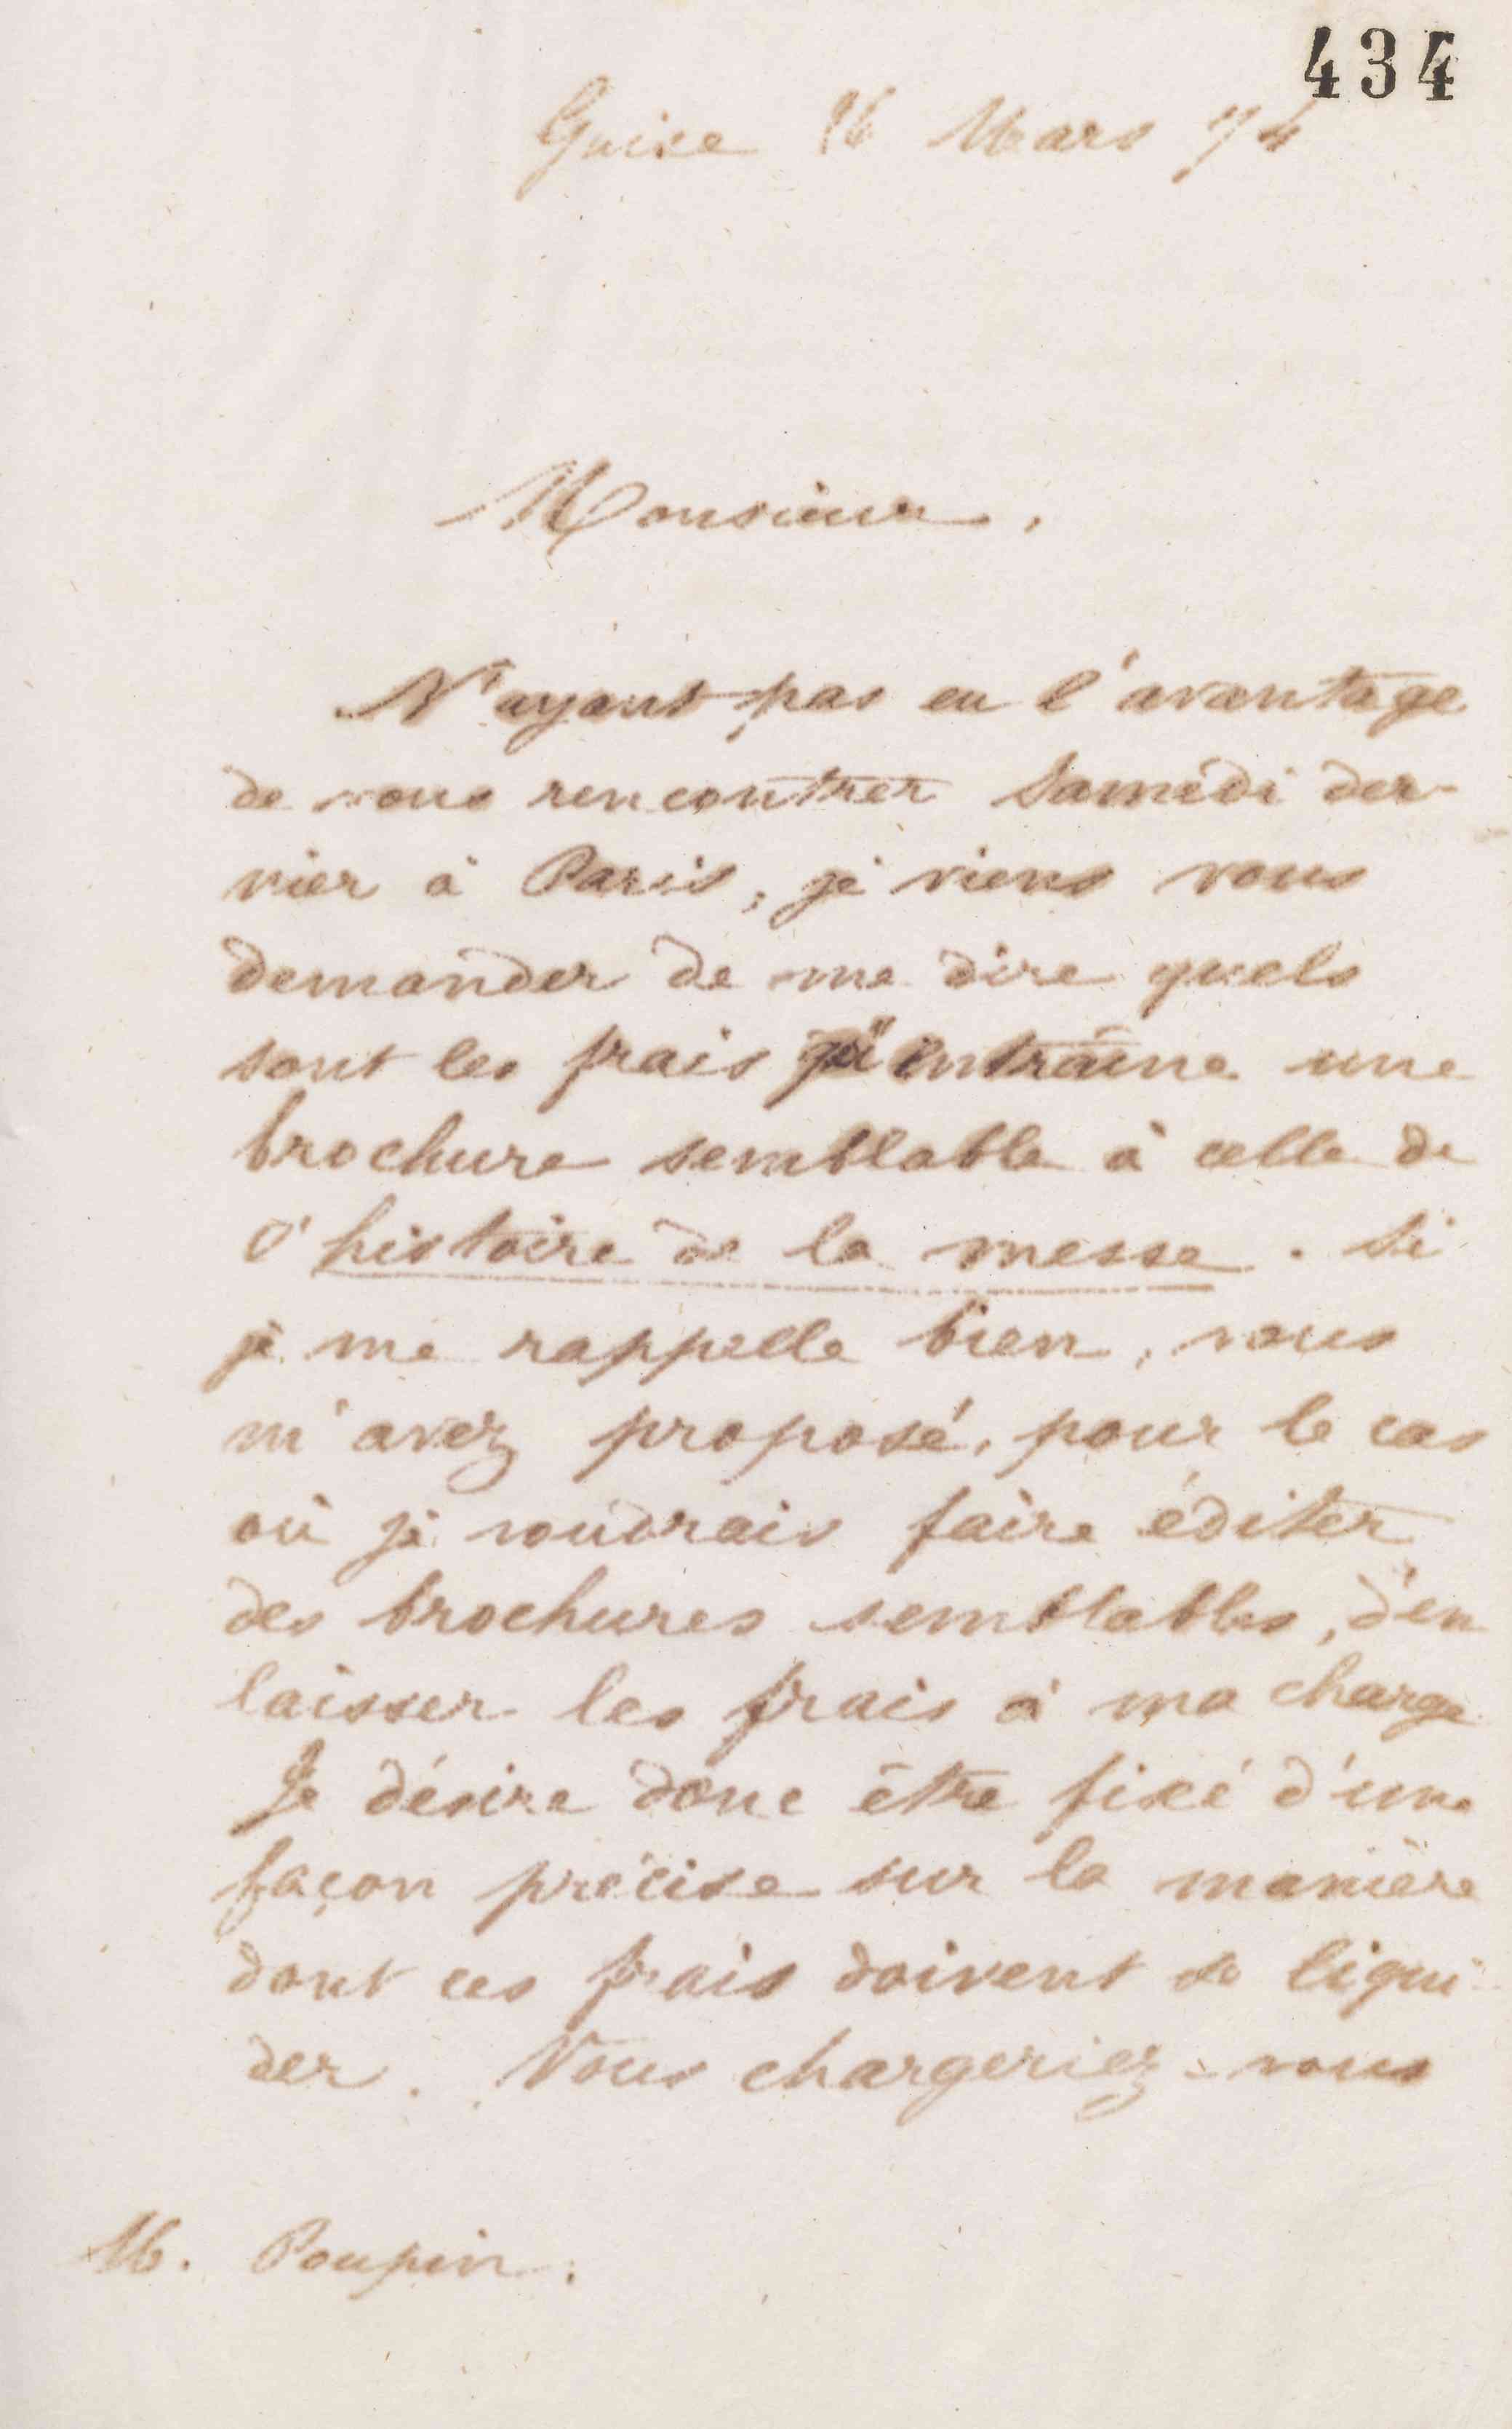 434
Guise 16 Mars 74
Monsieur,
N'ayant pas eu l'avantage
de vous rencontrer Samedi der-
nier à Paris, je viens vous
demander de me dire quels
sont les frais qu'entraîne une
brochure semblable à celle de
l'histoire de la messe. Si
je me rappelle bien, vous
m'avez proposé, pour le cas
où je voudrais faire éditer
des brochures semblables, d'en
laisser les frais à ma charge
Je désire donc être fixé d'une
façon précise sur la manière
dont ces frais doivent se liqui-
der. Vous chargeriez-vous
M. Poupin.